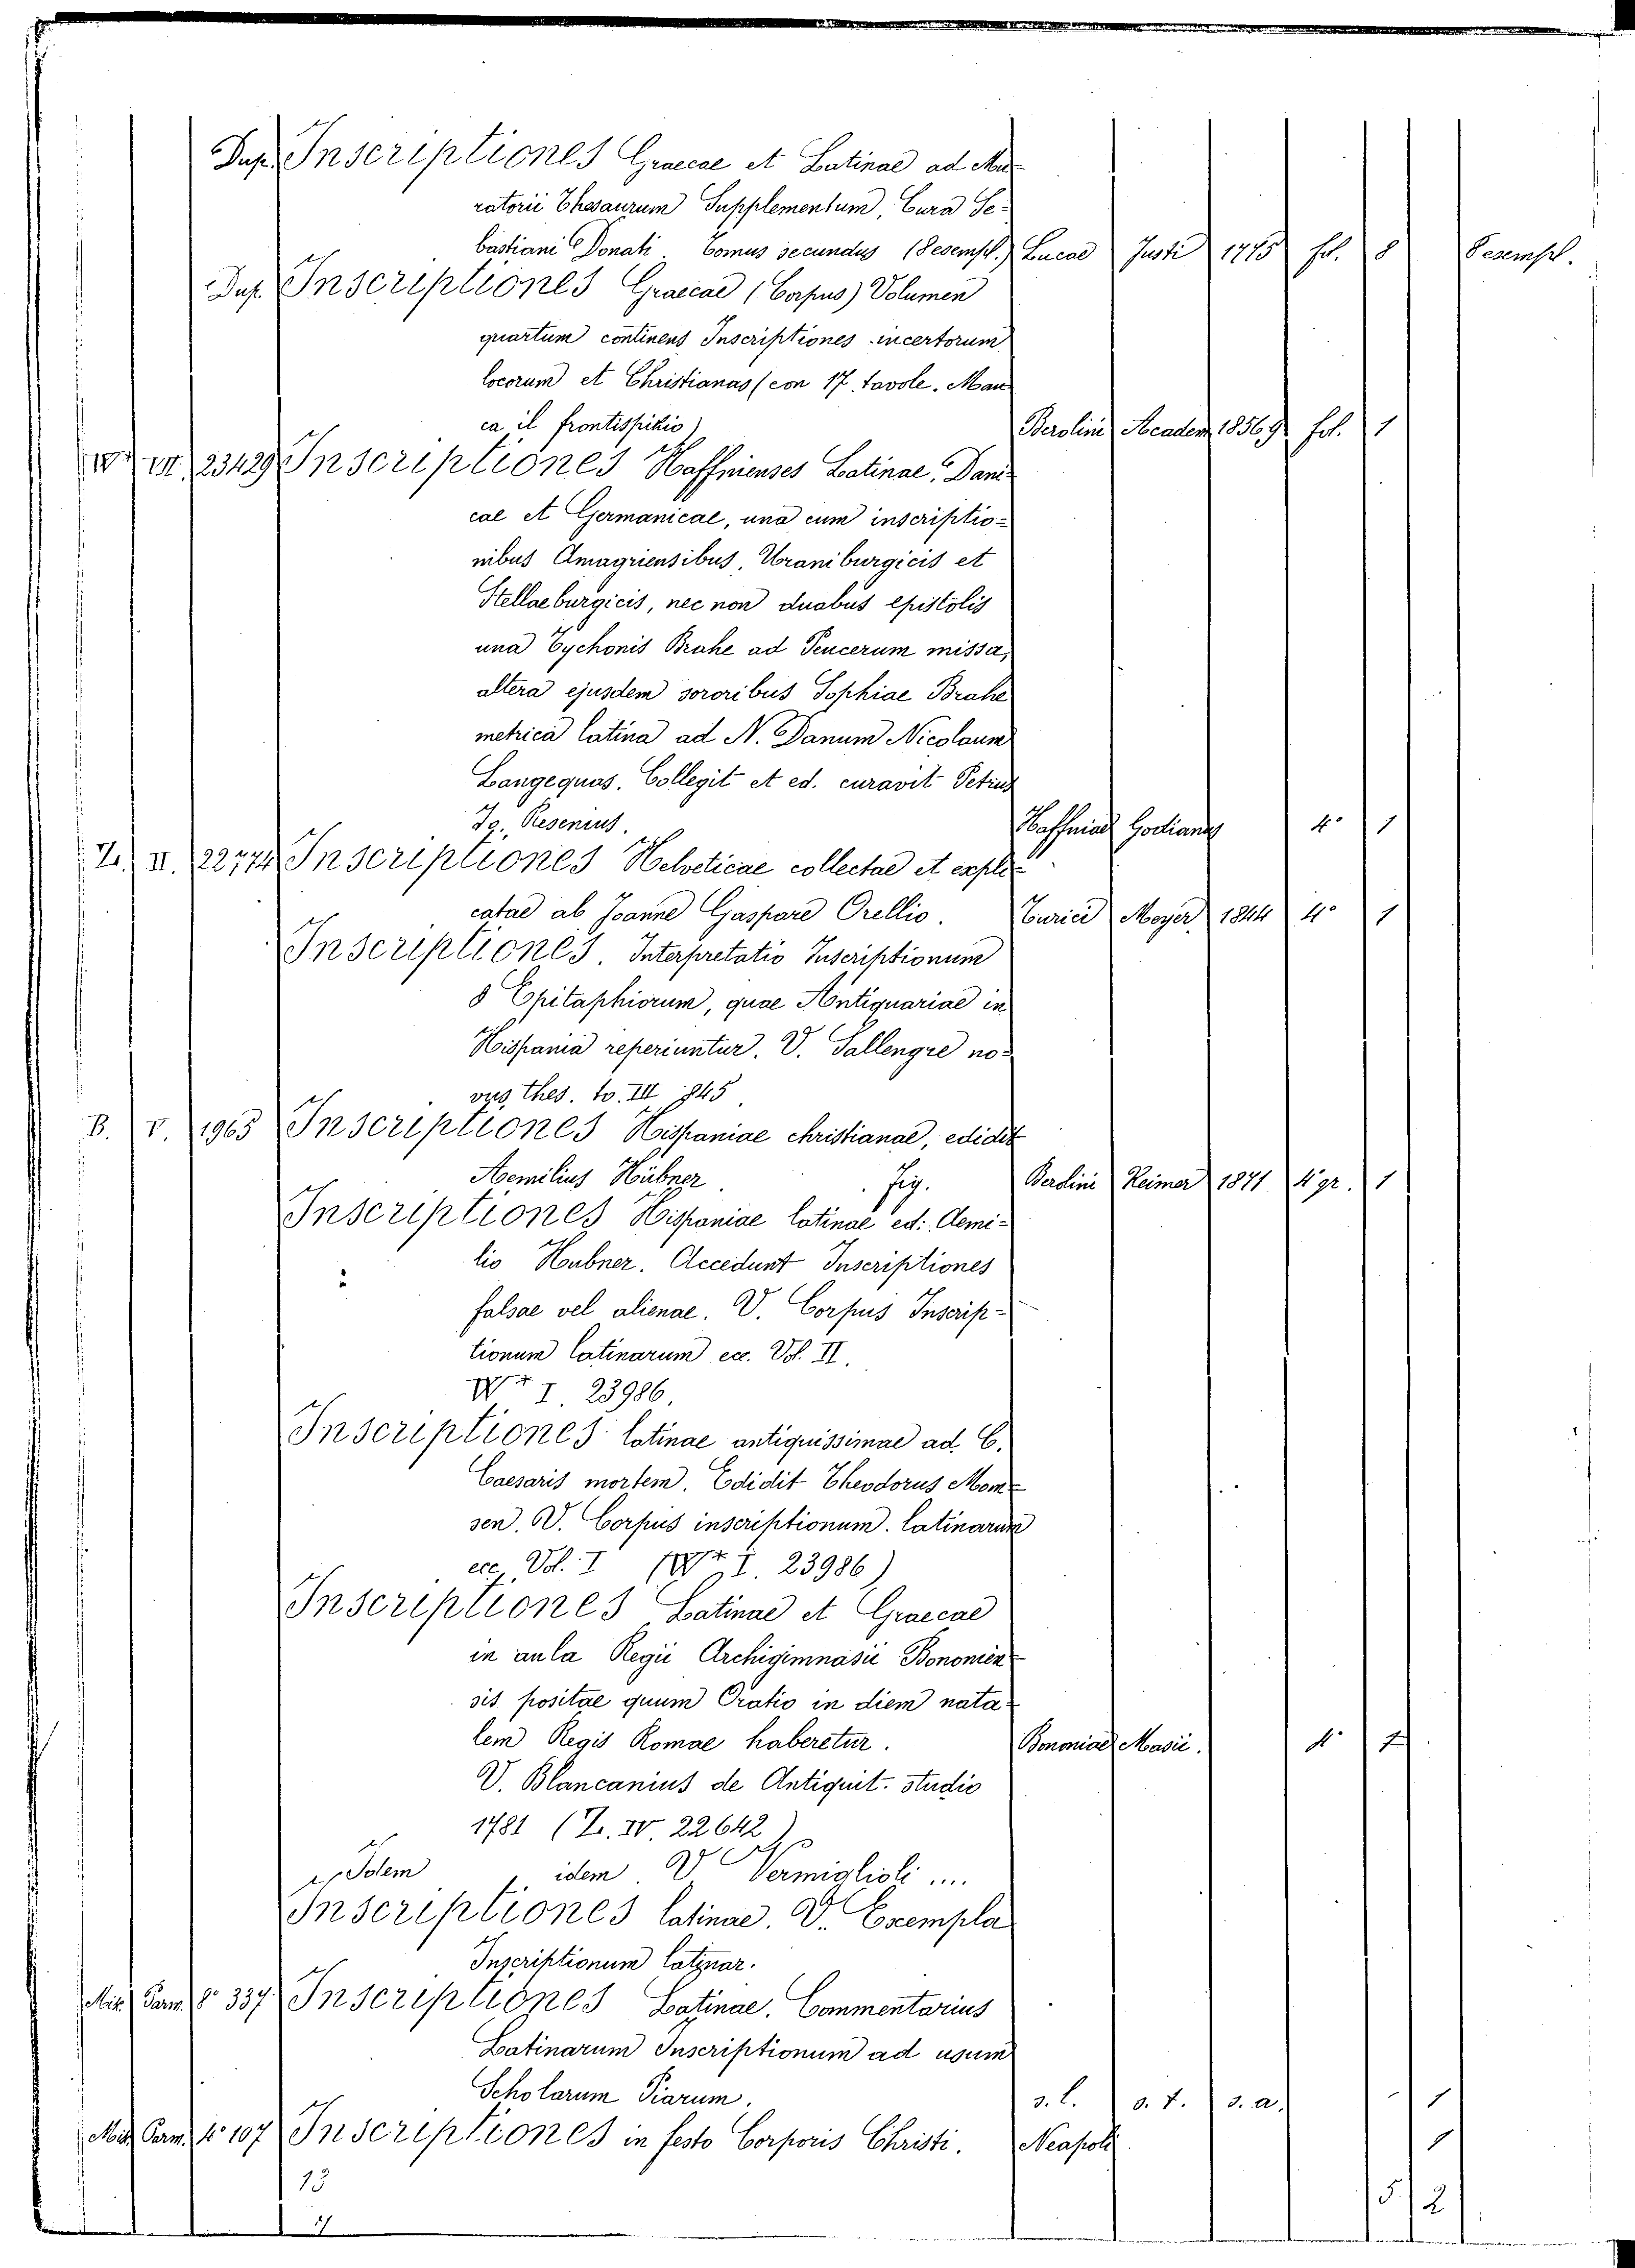 Dup. Inscriptiones Graecae et Latinae ad Mu-
ratorii Thesaurum Supplementum, Cura Se-
bastiani Donati. Tomus secundus (8 esempl.) Lucae Justi 1775 fol. 8 8 esempl.
Dup. Inscriptiones Graecae (Corpus) Volumen
quartum continens Inscriptiones incertorum
locorum et Christianas (con 17. tavole. Man-
ca il frontispizio) Berolini Academ. 1856 9 fol. 1
VII. 23429 Inscriptiones Haffnienses Latinae, Dani-
cae et Germanicae, una cum inscriptio-
nibus Amagriensibus, Uraniburgicis et
Stellaeburgicis, nec non duabus epistolis
una Tychonis Brahe ad Peucerum missa,
altera ejusdem sororibus Sophiae Brahe
metrica latina ad N. Danum Nicolaum
Langequas. Collegit et ed. curavit Petrus
Jo. Resenius. Haffniae Godianus 4° 1
Z. II. 22774 Inscriptiones Helveticae collectae et expli-
catae ab Joanne Gaspare Orellio. Turici Meyer 1844 4° 1
Inscriptiones. Interpretatio Inscriptionum
& Epitaphiorum, quae Antiquariae in
Hispania reperiuntur. V. Sallengre no-
vus thes. to. III 845
B. V. 1965 Inscriptiones Hispaniae christianae, edidit
Aemilius Hübner. fig. Berolini Reimer 1871. 4° gr. 1
Inscriptiones Hispaniae latinae ed. Aemi-
lio Hubner. Accedunt Inscriptiones
falsae vel alienae. V. Corpus Inscrip-
tionum latinarum ec. Vol. II.
W* I. 23986.
Inscriptiones latinae antiquissimae ad C.
Caesaris mortem. Edidit Theodorus Mom-
sen. V. Corpus inscriptionum. latinarum
ecc. Vol. I (W* I. 23986)
Inscriptiones Latinae et Graecae
in aula Regii Archigimnasii Bononien-
sis positae quum Oratio in diem nata-
lem Regis Romae haberetur. Bononiae Masii. 4° 1
V. Blancanius de Antiquit. studio
1781 (Z. IV. 22642)
Idem idem V. Vermiglioli ....
Inscriptiones latinae. V. Exempla
Inscriptionum latinar.
Mis. Parm. 8° 337 Inscriptiones Latinae. Commentarius
Latinarum Inscriptionum ad usum
Scholarum Piarum. s. l. s. t. s. a. 1
Mis. Parm. 4° 107 Inscriptiones in festo Corporis Christi. Neapoli 1
13 5 2